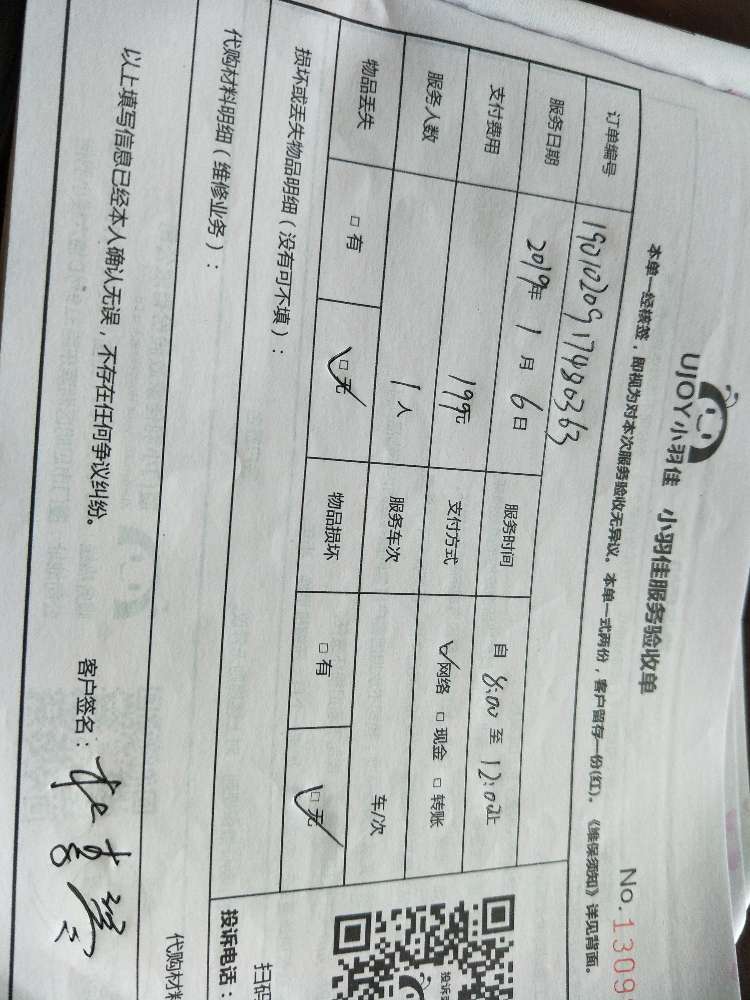 UJOY小羽佳 小羽佳服务验收单
No.1309
本单一经核签，即视为对本次服务验收无异议。本单一式两份，客户留存一份(红)。《维保须知》详见背面。
订单编号 1901020917480363
服务日期 2019年 1 月 6 日 服务时间 自 8:00 至 12:00止
支付费用 199元 支付方式 网络 □ 现金 □ 转账
服务人数 1 人 服务车次 车/次
物品丢失 □ 有 □ 无 物品损坏 □ 有 □ 无
损坏或丢失物品明细（没有可不填）：
代购材料明细（维修业务）：
以上填写信息已经本人确认无误，不存在任何争议纠纷。 客户签名：
投诉
扫码
投诉电话：
代购材料